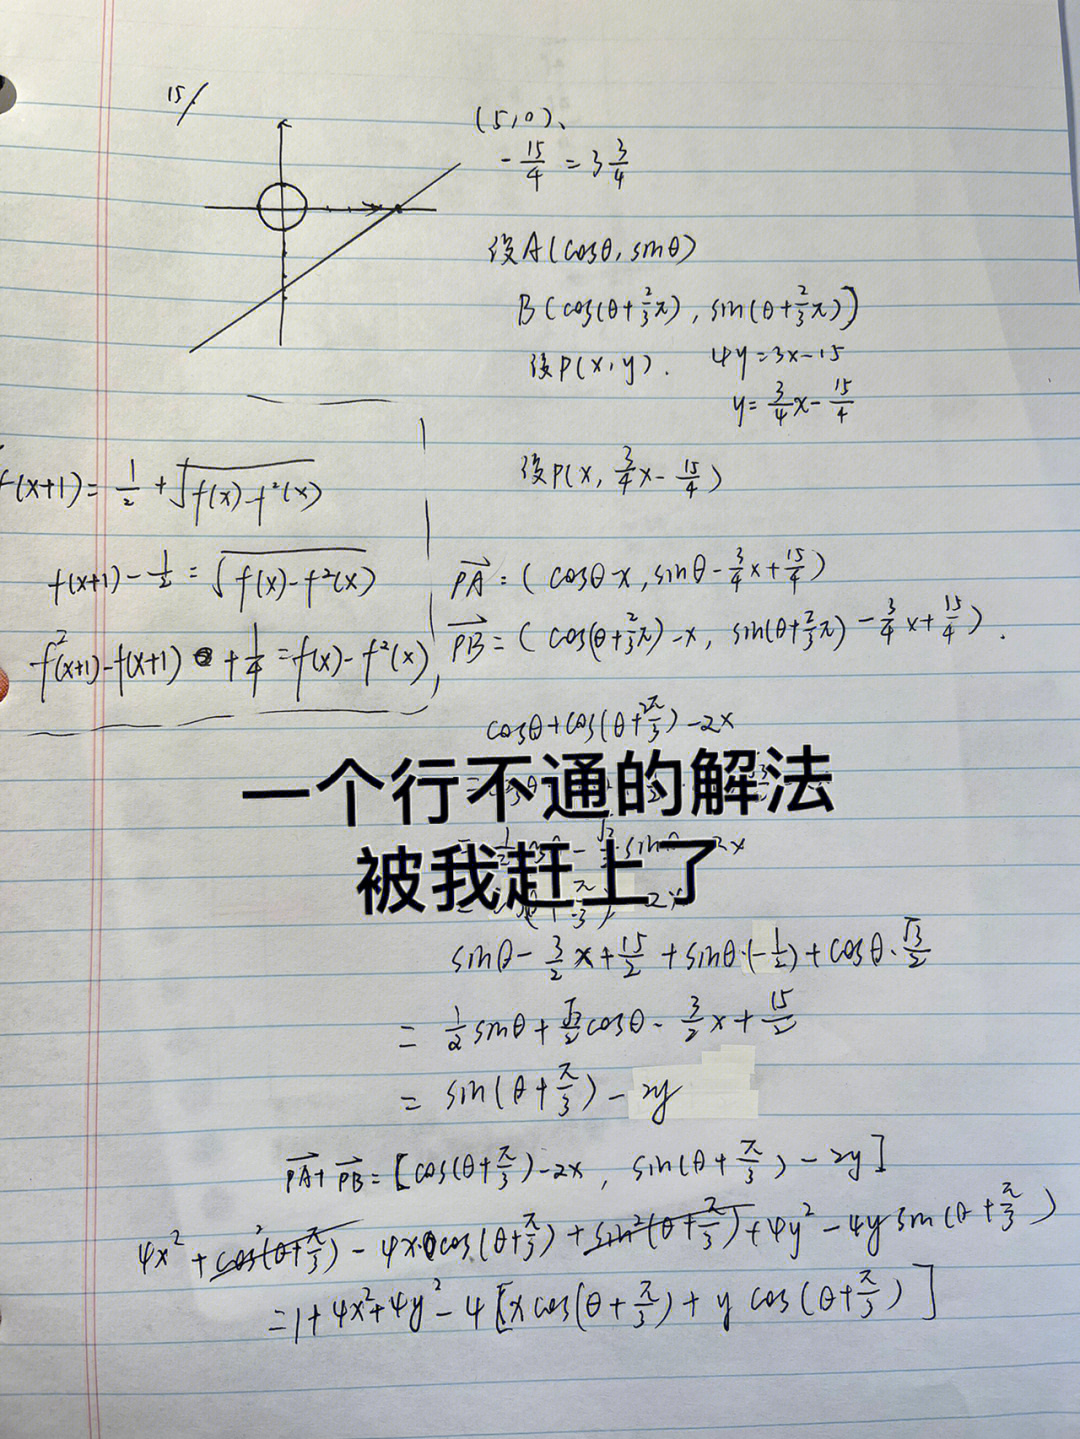 15/
(5,0)、
-15/4 = 3 3/4
设A(cosθ, sinθ)
B(cos(θ+2/3π), sin(θ+2/3π))
设P(x,y). 4y=3x-15
y=3/4x-15/4
设P(x, 3/4x-15/4)
f(x+1)=1/2+√(f(x)-f²(x))
f(x+1)-1/2=√(f(x)-f²(x))
f²(x+1)-f(x+1)+1/4=f(x)-f²(x),
PA=(cosθ-x, sinθ-3/4x+15/4)
PB=(cos(θ+2/3π)-x, sin(θ+2/3π)-3/4x+15/4).
cosθ+cos(θ+2π/3)-2x
一个行不通的解法
被我赶上了
sinθ-3/2x+15/2+sinθ·(-1/2)+cosθ·√3/2
=1/2sinθ+√3/2cosθ-3/2x+15/2
=sin(θ+π/3)-2y
PA+PB=[cos(θ+π/3)-2x, sin(θ+π/3)-2y]
4x²+cos²(θ+π/3)-4x·cos(θ+π/3)+sin²(θ+π/3)+4y²-4y sin(θ+π/3)
=1+4x²+4y²-4[x cos(θ+π/3)+y cos(θ+π/3)]